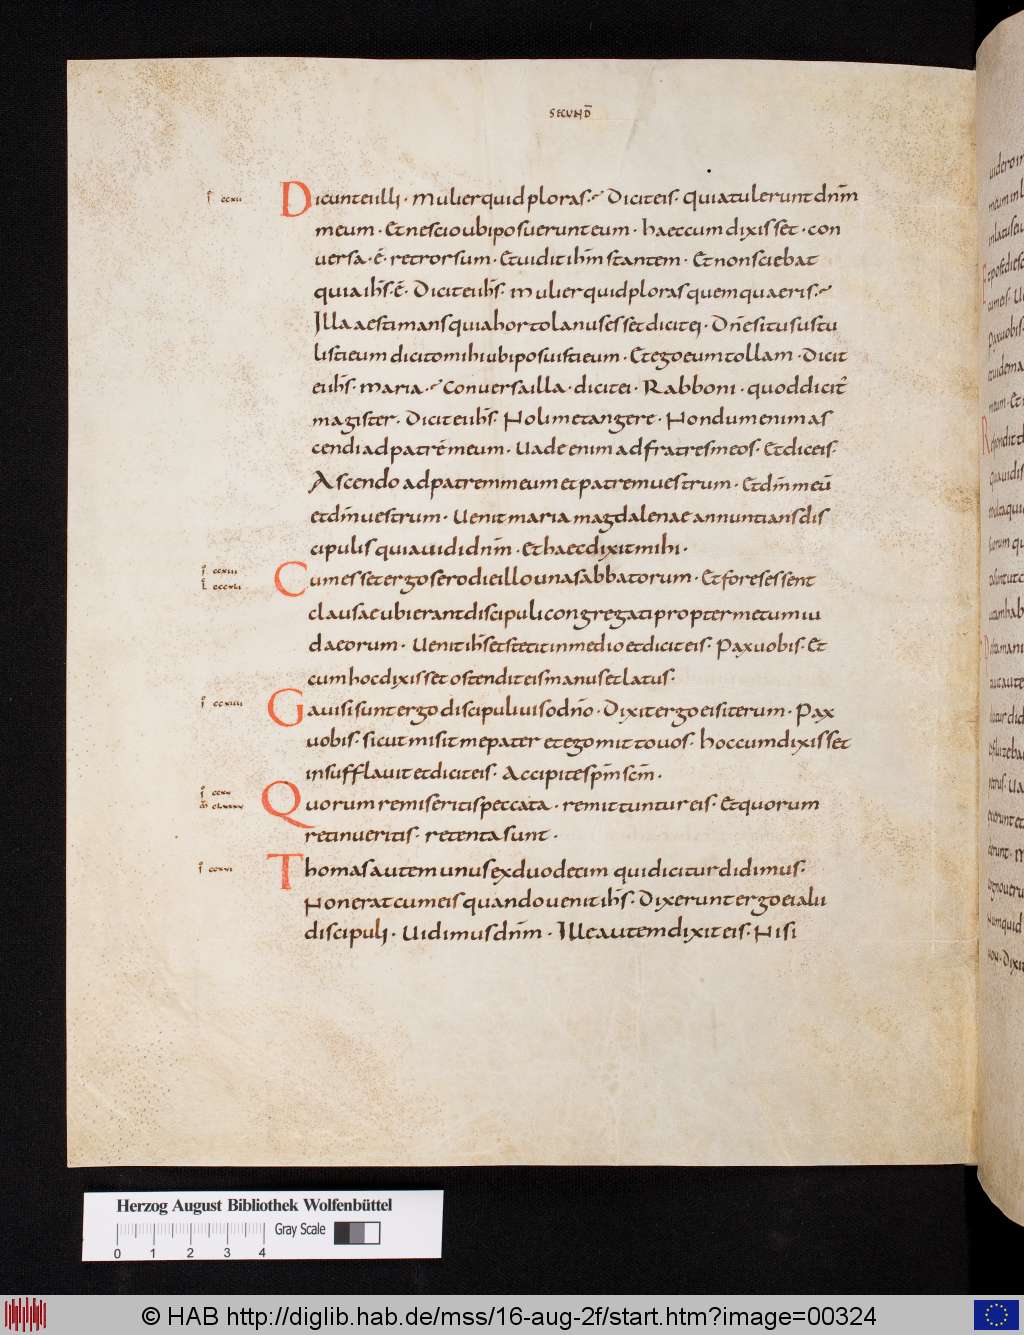 SECUND̄
ī ccxii
Dicunt ei illi · Mulier quid ploras · Dicit eis · Quia tulerunt dn̄m
meum · Et nescio ubi posuerunt eum · haec cum dixisset · con
versa · ē · retrorsum · Et vidit ih̄m stantem · Et non sciebat
quia ih̄s · ē · Dicit ei ih̄s · Mulier quid ploras quem quaeris ·
Illa aestimans quia hortolanus esset dicit ei · Dn̄e si tu sustu
listi eum dicito mihi ubi posuisti eum · Et ego eum tollam · Dicit
ei ih̄s · Maria · Conversa illa · dicit ei · Rabboni · quod dicit̄
magister · Dicit ei ih̄s · Noli me tangere · Nondum enim as
cendi ad patrē meum · Vade enim ad fratres meos · Et dic eis ·
Ascendo ad patrem meum et patrem uestrum · Et dm̄ meū
et dm̄ uestrum · Uenit maria magdalenae annuntians dis
cipulis quia uidi dn̄m · Et haec dixit mihi ·
ccxiii
cccxli
Cum esset ergo sero die illo una sabbatorum · Et fores essent
clausae ubi erant discipuli congregati propter metum iu
daeorum · Uenit ih̄s et stetit in medio et dicit eis · Pax uobis · Et
cum hoc dixisset ostendit eis manus et latus ·
ccxiiii
Gavisi sunt ergo discipuli viso dn̄o · Dixit ergo eis iterum · Pax
vobis · sicut misit me pater et ego mitto vos · hoc cum dixisset
insufflavit et dicit eis · Accipite sp̄m sc̄m ·
ccxv
clxxxx
Quorum remiseritis peccata · remittuntur eis · Et quorum
retinueritis · retenta sunt ·
ccxvi
Thomas autem unus ex duodecim qui dicitur didimus ·
Non erat cum eis quando venit ih̄s · Dixerunt ergo ei alii
discipuli · Uidimus dn̄m · Ille autem dixit eis · Nisi
Herzog August Bibliothek Wolfenbüttel
Gray Scale
0 1 2 3 4
© HAB http://diglib.hab.de/mss/16-aug-2f/start.htm?image=00324